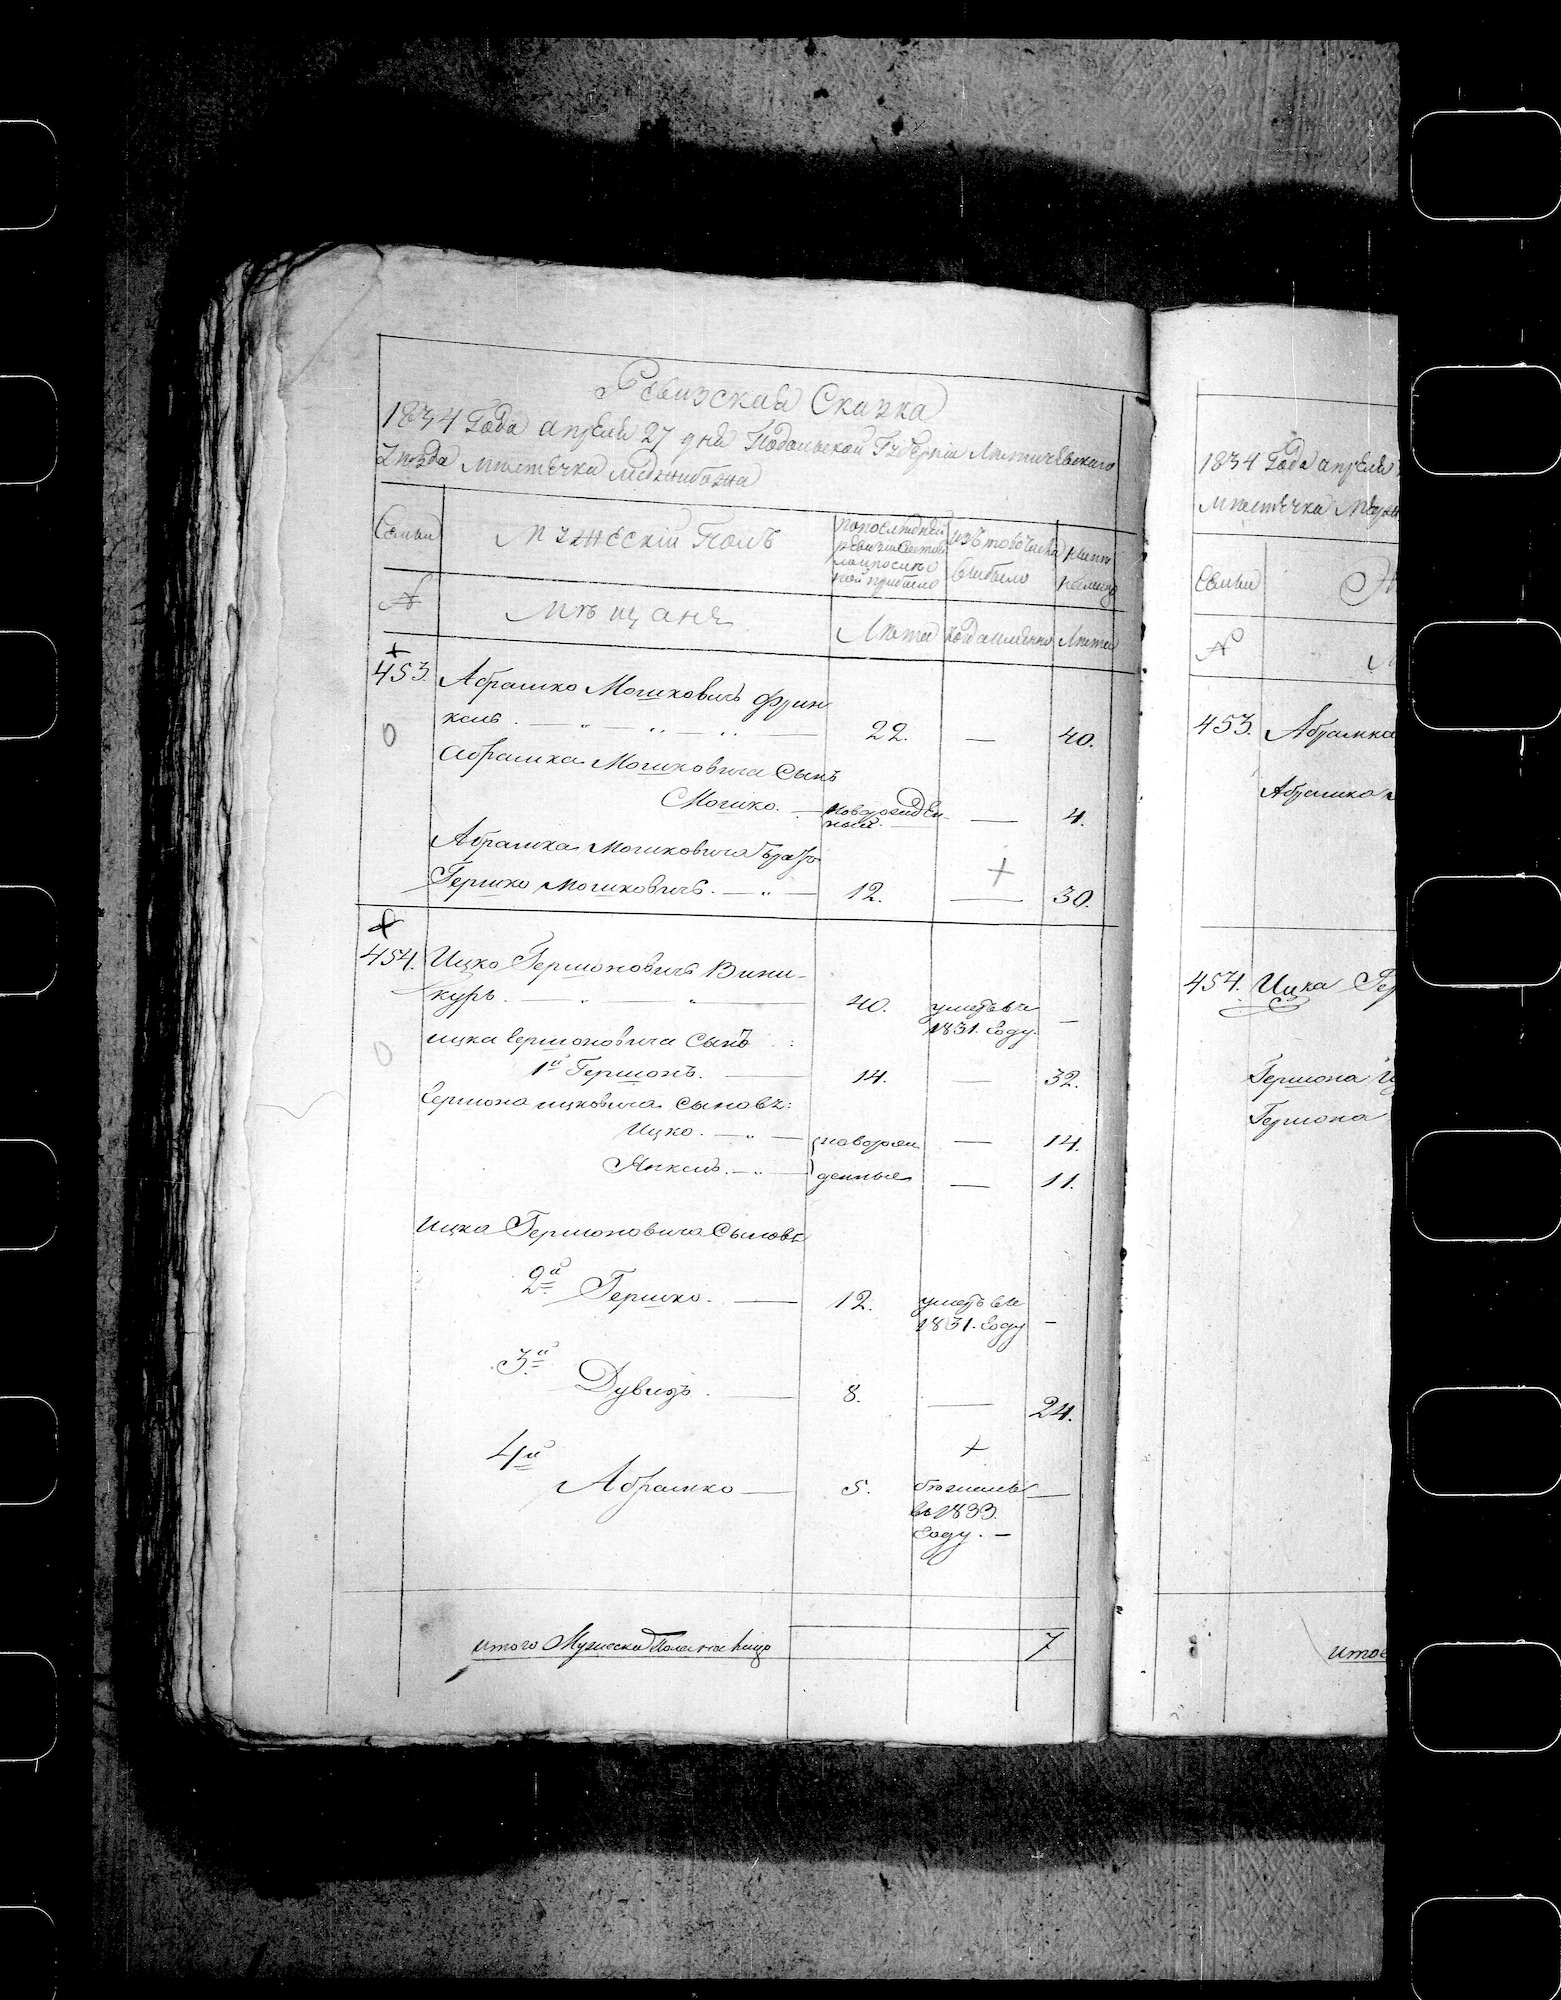 Ревизская Сказка
1834 Года апреля 27 дня Подольской Губернии Летичевскаго
Уезда местечка Меджибожа
Семьи
мужескій полъ
по последней
ревизіи состоя
ло и после
ной прибыло
изъ того числа
выбыло
ныне
на лицо
№
мещане
Лета
когда именно
Лета
453.
Абрамко Мошковичъ Френ
кель.
22.
—
40.
Абрамка Мошковича Сынъ
Мошко.
новорожден
ный.
—
4.
Абрамка Мошковича братъ
Гершко Мошковичъ.
12.
—
30.
454.
Ицко Гершоновичъ Вини-
куръ.
40.
умеръ въ
1831. году.
—
Ицка Гершоновича Сынъ:
1й Гершонъ.
14.
—
32.
Гершона ицковича сыновъ:
Ицко.
новорож
—
14.
Янкель.
денные
—
11.
Ицка Гершоновича Сыновъ
2й Гершко.
12.
умеръ въ
1831. году
—
3й
Дувидъ.
8.
—
24.
4й
Абрамко
5.
бежалъ
въ 1833.
году. —
—
итого Мужеска Пола на лицо
7
1834 Года апреля
местечка Медж
Семьи
№
453. Абрамка
Абрамко
454. Ицка Гер
Гершона Иц
Гершона
итого